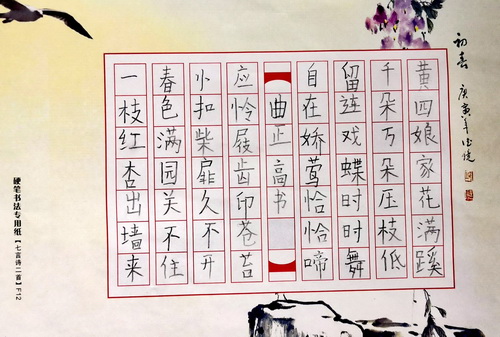 初春 庚寅年
黄四娘家花满蹊
千朵万朵压枝低
留连戏蝶时时舞
自在娇莺恰恰啼
曲止高书
应怜屐齿印苍苔
小扣柴扉久不开
春色满园关不住
一枝红杏出墙来
硬笔书法专用纸【七言诗二首】F12